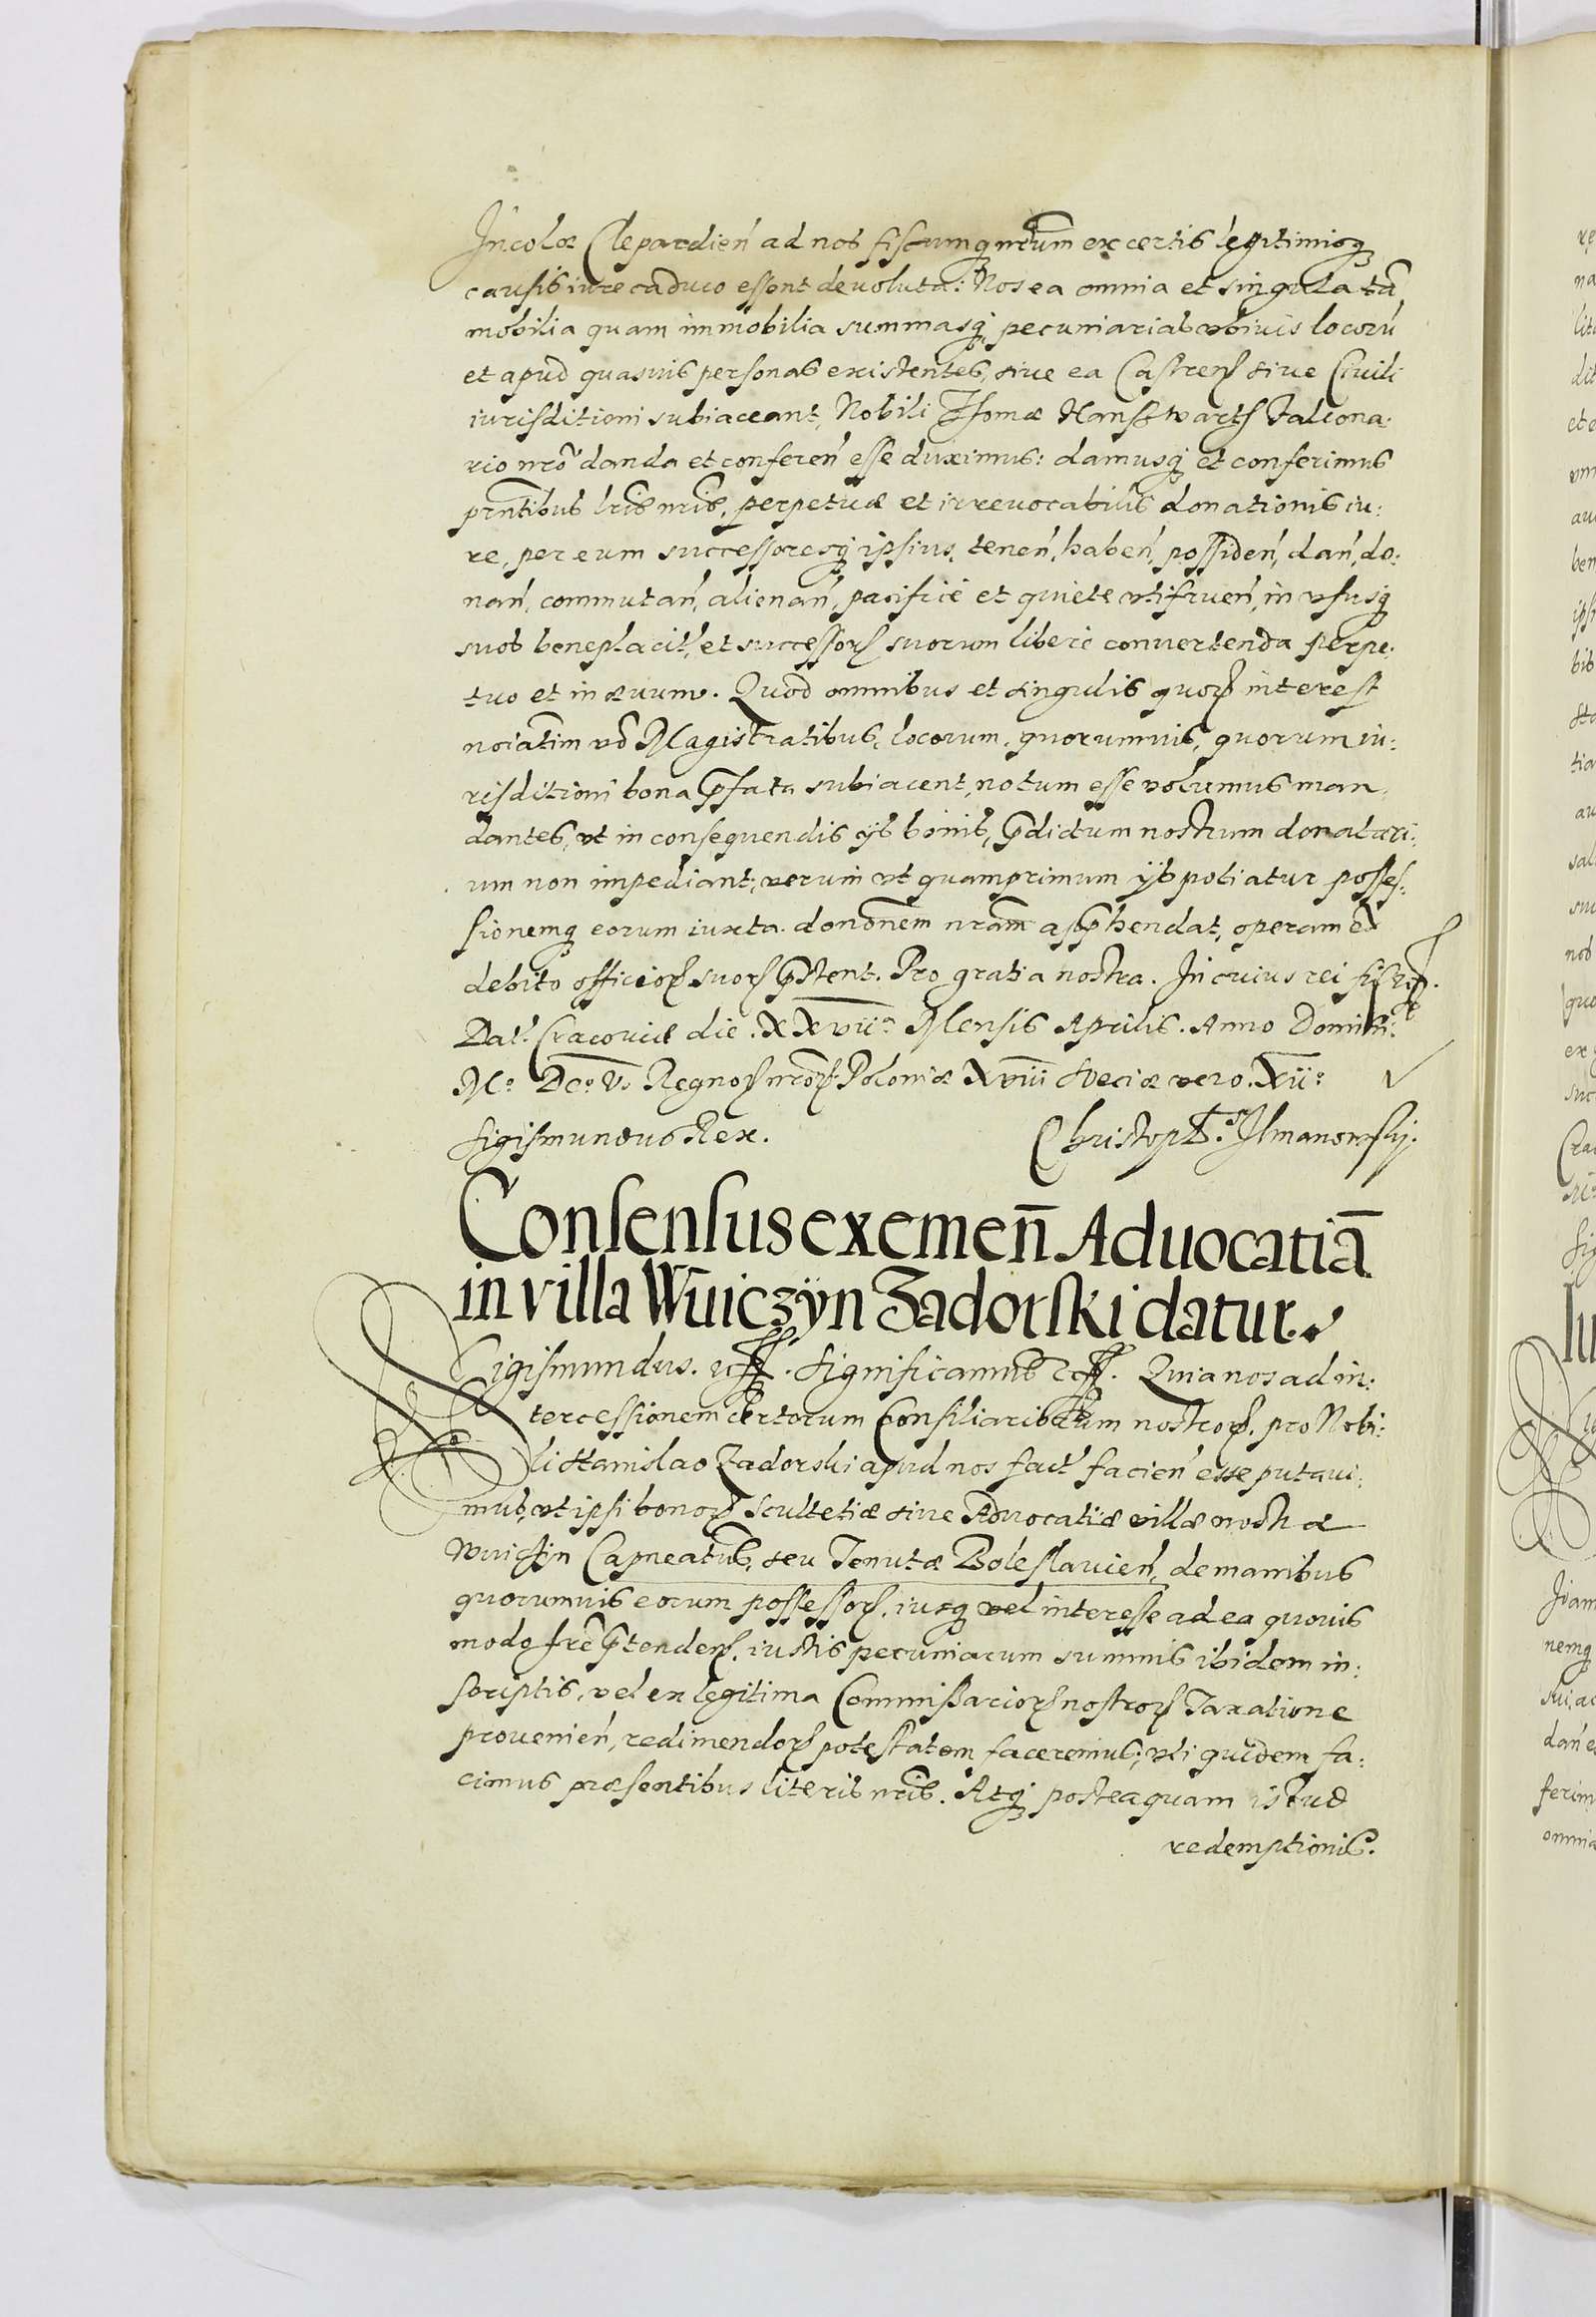 Incolæ Clepardień ad nos fiscumq; nrum ex certis legitimisq;
causis iure caduco essent deuoluta: Nos ea omnia et singula tā
mobilia quam immobilia summasq; pecuniarias vbiuis locorū
et apud quasuis personas existentes, siue ea Castreñ siue Ciuili
iurisditioni subiaceant, Nobili Thomæ Falcona:
rio nrō danda et conferen̄ esse duximus: damusq; et conferimus
pn̄tibus lris nris, perpetuæ et irreuocabilis donationis iu:
re, per eum successoresq; ipsius, tenen̄, haben̄, possiden̄, dan̄, do:
nan̄, commutan̄, alienan̄, pacificè et quietè vtifruen̄, in vsusq;
suos beneplacit, et successorꝝ suorum liberè conuertenda perpe:
tuo et in æuum. Quod omnibus et singulis quorꝝ interest
noiatim vō Magistratibus, locorum, quorumuis, quorum iu:
risditioni bona p̄fata subiacent, notum esse volumus man,
dantes, vt in consequendis ijs bonis, p̄dictum nostrum donatari:
um non impediant, verum vt quamprimum ijs potiatur posses:
sionemq; eorum iuxta donōnem nram app̄hendat, operam ex
debito officiorꝝ suorꝝ p̄stent. Pro gratia nostra. In cuius rei fidem.
Dat. Cracouiæ die. XXvii.a Mensis Aprilis. Anno Domini:
M.o DC.o V. Regnorꝝ nrorꝝ Poloniæ Xviii Sueciæ vero. Xii:o
Sigismundus Rex. Christoph.s Ilmanowskj.
Consensus exemen̄ Aduocatiā
in villa Wuiczÿn Zadorski datur.
Sigismundus. &c. Significamus &c. Quia nos ad in:
tercessionem certorum Consiliariorum nostrorꝝ. pro Nobi:
li Stanislao Zadorski apud nos fact facien̄ esse putaui:
mus, vt ipsi bonorꝝ Scultetiæ siue Aduocatiæ villæ nostræ
Capneatus, seu Tenutæ Boleslauien̄, de manibus
quorumuis eorum possessorꝝ, iusq; vel interesse ad ea quouis
modo p̄tendeñ, iustis pecuniarum summis ibidem in:
scriptis, vel ex legitima Commissariorꝝ nostrorꝝ Taxatione
prouenien̄, redimendorꝝ potestatem faceremus; vti quidem fa:
cimus præsentibus literis nris. Atq; posteaquam istud
redemptionis.